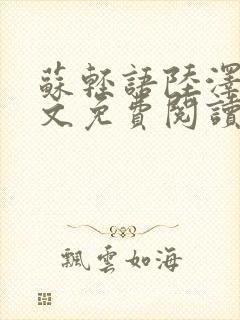 蘇輕語陸澤
文免費閱讀
飄雲如海